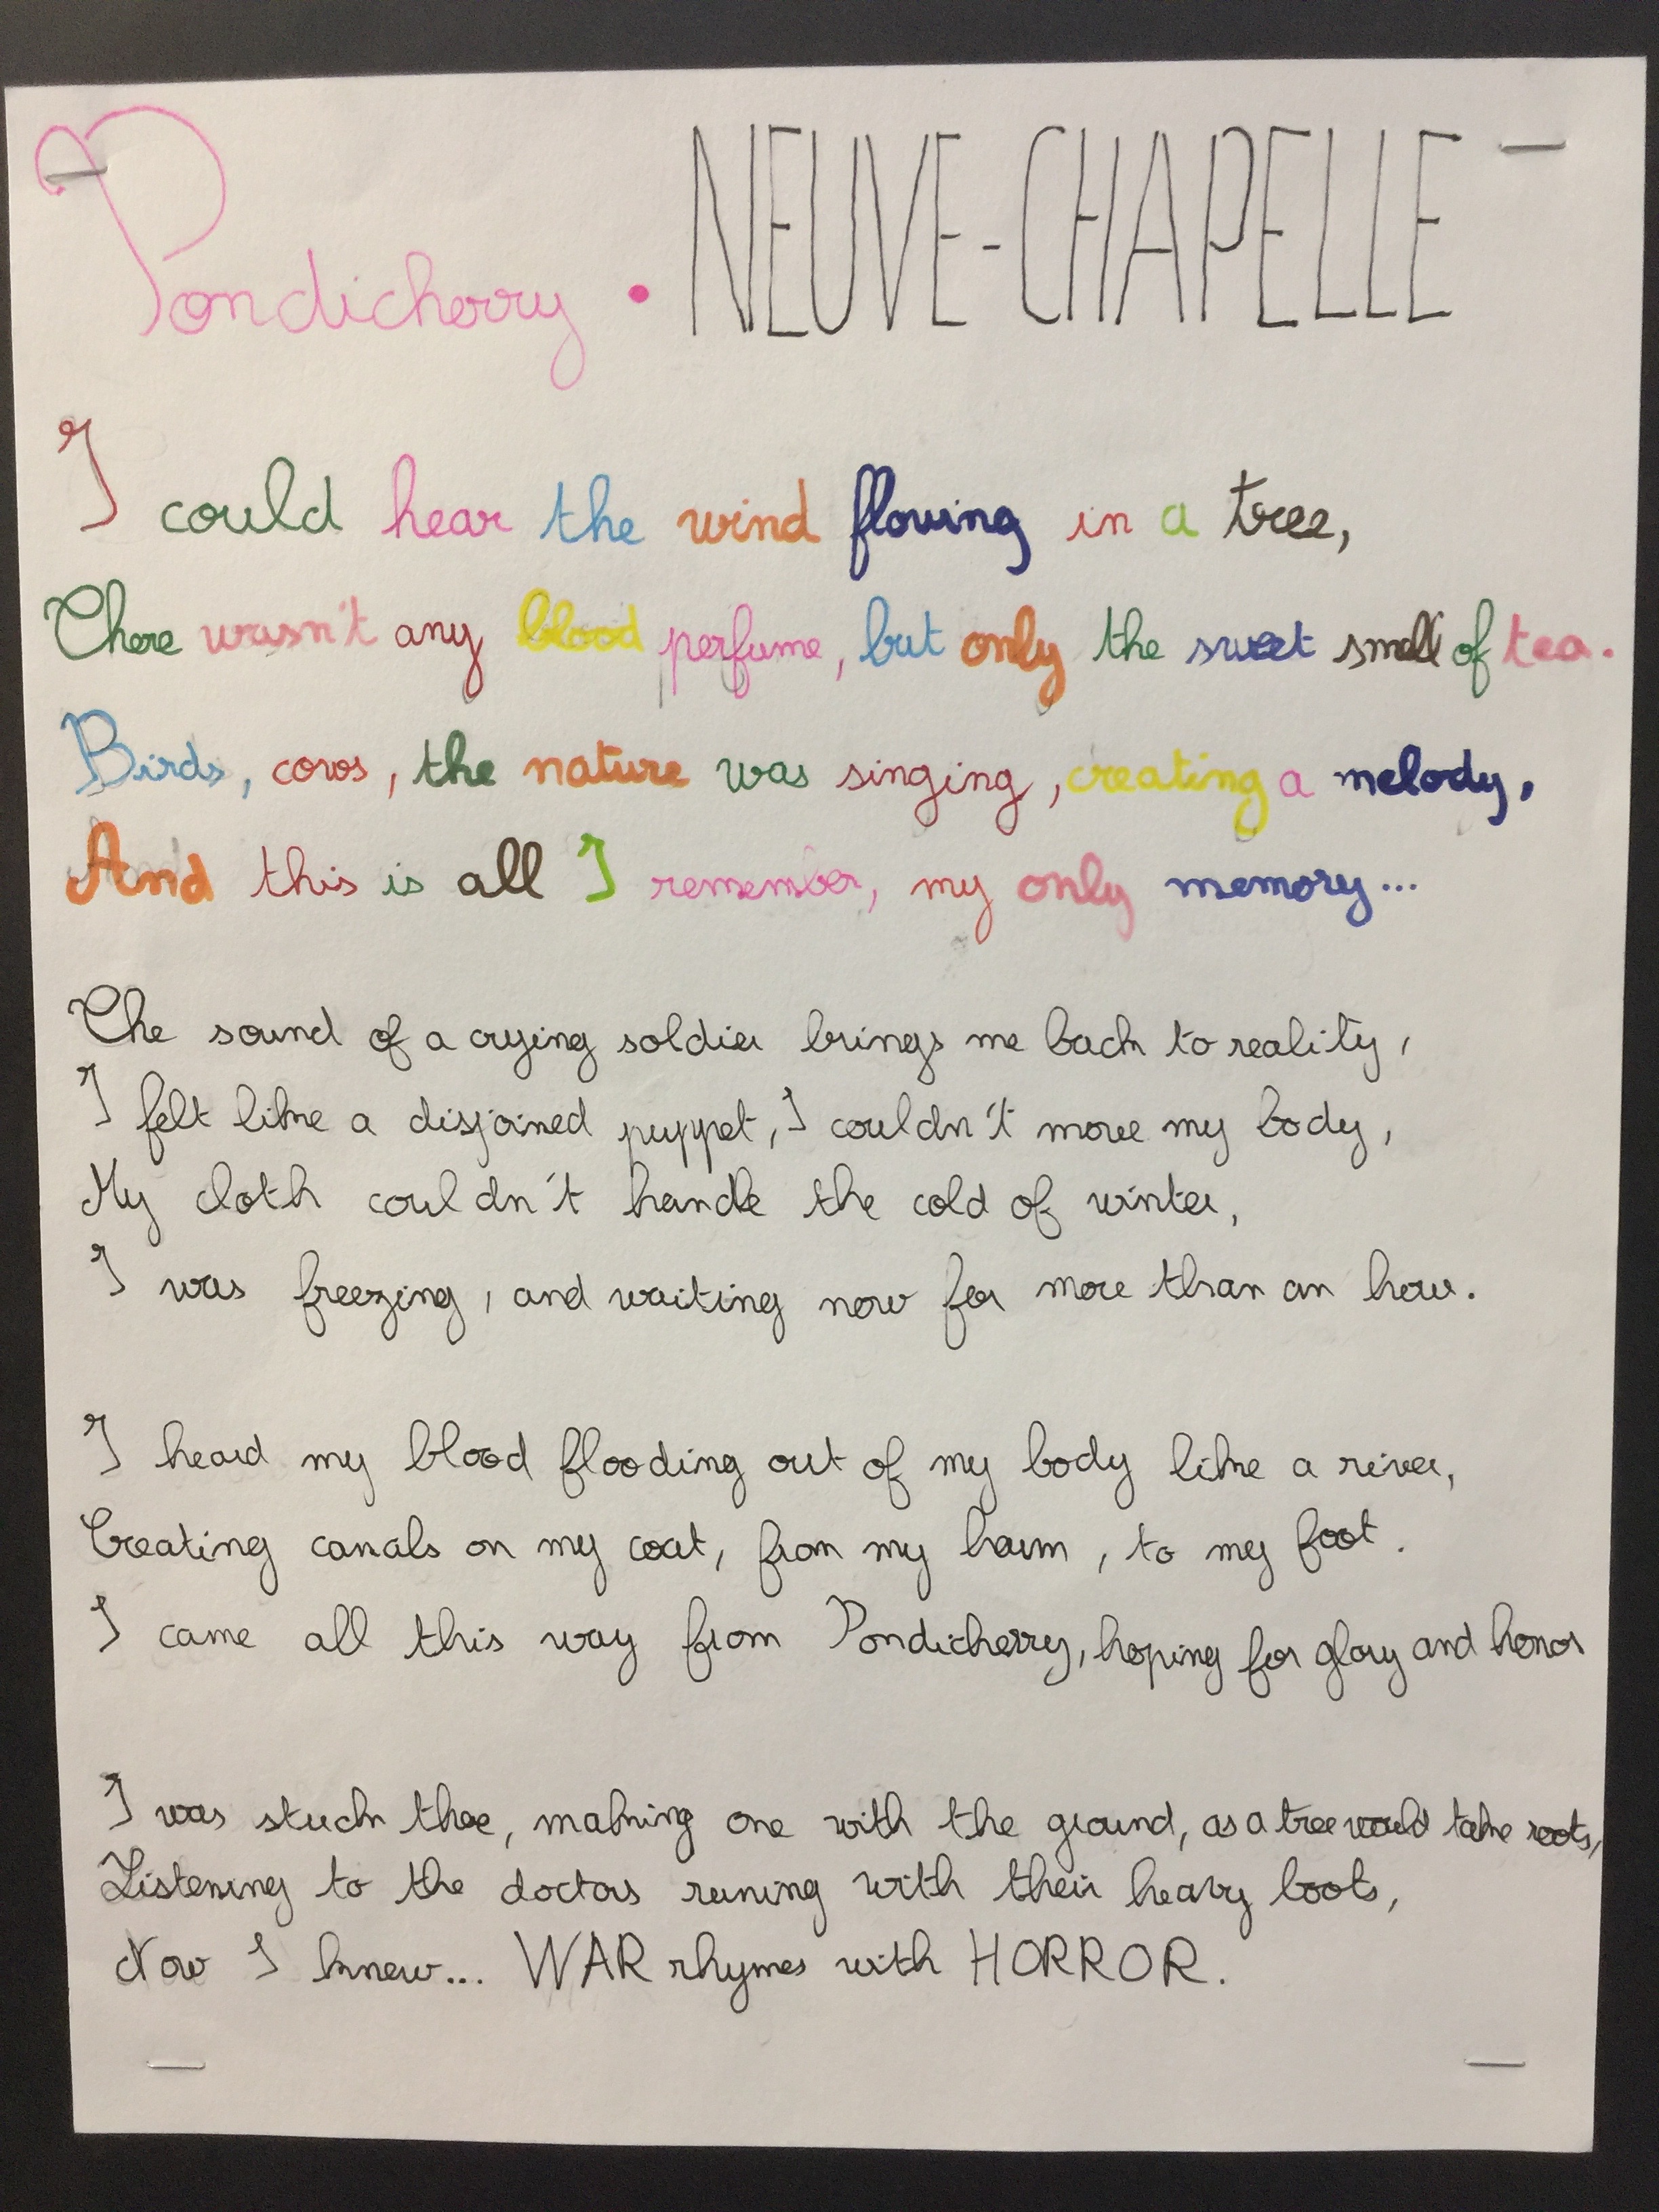 Pondicherry • NEUVE-CHAPELLE
I could hear the wind flowing in a tree,
There wasn't any blood perfume, but only the sweet smell of tea.
Birds, cows, the nature was singing, creating a melody,
And this is all I remember, my only memory...
The sound of a crying soldier brings me back to reality,
I felt like a disjoined puppet, I couldn't move my body,
My cloth couldn't handle the cold of winter,
I was freezing, and waiting now for more than an hour.
I heard my blood flooding out of my body like a river,
Creating canals on my coat, from my harm, to my foot.
I came all this way from Pondicherry, hoping for glory and honor
I was stuck there, making one with the ground, as a tree would take roots,
Listening to the doctors runing with their heavy boots,
Now I knew... WAR rhymes with HORROR.